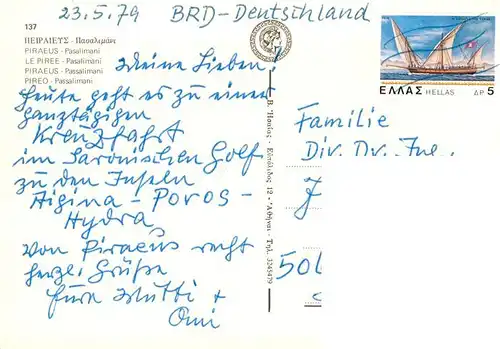 23.5.79 BRD-Deutschland
137
ΠΕΙΡΑΙΕΥΣ - Πασαλιμάνι
PIRAEUS - Pasalimani
LE PIREE - Pasalimani
PIREUS - Passalimani
PIREO - Passalimani
Meine Lieben,
heute geht es zu einer
ganztägigen
Kreuzfahrt
im Saronischen Golf
zu den Inseln
Aigina - Poros -
Hydra,
Von Piraeus recht
herzl. Grüße
Eure Mutti +
Omi
ΕΛΛΑΣ HELLAS ΔΡ 5
Familie
Div. Dr. Ing.
J
506
Εὐπόλιδος 12 • Ἀθῆναι • Τηλ. 3245479